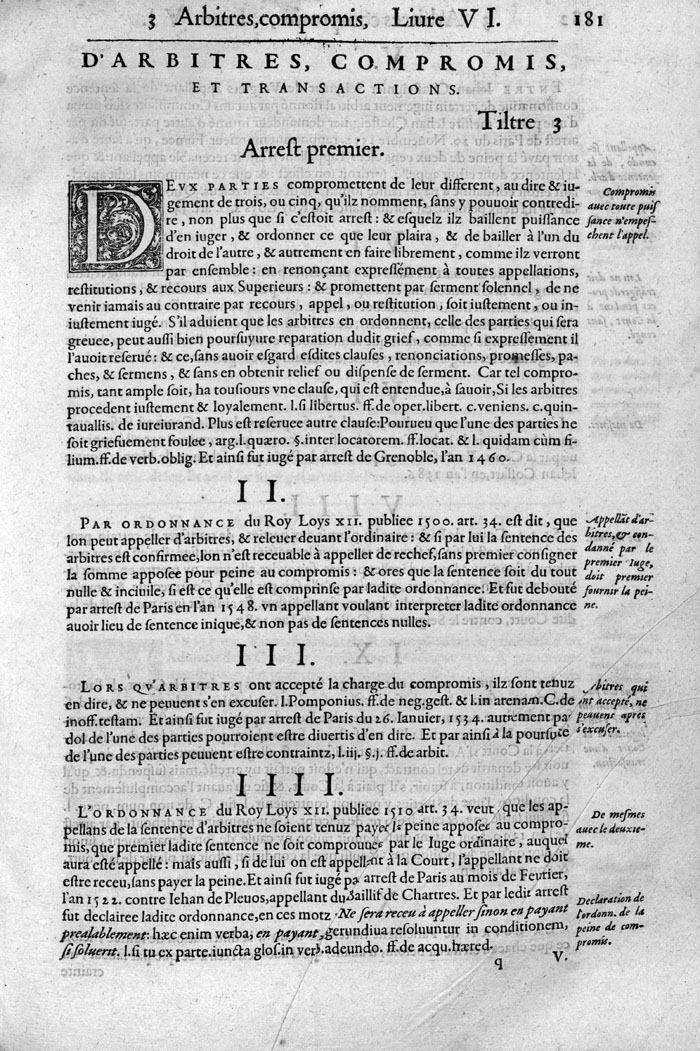 3 Arbitres, compromis, Liure VI. 181
D'ARBITRES, COMPROMIS,
ET TRANSACTIONS.
Tiltre 3
Arrest premier.
DEVX PARTIES compromettent de leur different, au dire & iu-
gement de trois, ou cinq, qu'ilz nomment, sans y pouuoir contredi-
re, non plus que si c'estoit arrest: & esquelz ilz baillent puissance
d'en iuger, & ordonner ce que leur plaira, & de bailler à l'un du
droit de l'autre, & autrement en faire librement, comme ilz verront
par ensemble: en renonçant expressément à toutes appellations,
restitutions, & recours aux Superieurs: & promettent par serment solennel, de ne
venir iamais au contraire par recours, appel, ou restitution, soit iustement, ou in-
iustement iugé. S'il aduient que les arbitres en ordonnent, celle des parties qui sera
greuee, peut aussi bien poursuyure reparation dudit grief, comme si expressement il
l'auoit reserué: & ce, sans auoir esgard esdites clauses, renonciations, promesses, pa-
ches, & sermens, & sans en obtenir relief ou dispense de serment. Car tel compro-
mis, tant ample soit, ha tousiours vne clause, qui est entendue, à sauoir, Si les arbitres
procedent iustement & loyalement. l. si libertus. ff. de oper. libert. c. veniens. c. quin-
tauallis. de iureiurand. Plus est reseruee autre clause: Pourueu que l'une des parties ne
soit griefuement foulee, arg. l. quæro. §. inter locatorem. ff. locat. & l. quidam cùm fi-
lium. ff. de verb. oblig. Et ainsi fut iugé par arrest de Grenoble, l'an 1460.
Compromis
auec toute puis
sance n'empes-
chent l'appel.
II.
PAR ORDONNANCE du Roy Loys XII. publiee 1500. art. 34. est dit, que
lon peut appeller d'arbitres, & releuer deuant l'ordinaire: & si par lui la sentence des
arbitres est confirmee, lon n'est receuable à appeller de rechef, sans premier consigner
la somme apposee pour peine au compromis: & ores que la sentence soit du tout
nulle & inciuile, si est ce qu'elle est comprinse par ladite ordonnance. Et fut debouté
par arrest de Paris en l'an 1548. vn appellant voulant interpreter ladite ordonnance
auoir lieu de sentence inique, & non pas de sentences nulles.
Appellāt d'ar-
bitres, & con-
danné par le
premier Iuge,
doit premier
fournir la pei-
ne.
III.
LORS QV'ARBITRES ont accepté la charge du compromis, ilz sont tenuz
en dire, & ne peuuent s'en excuser. l. Pomponius. ff. de neg. gest. & l. in arenam. C. de
inoff. testam. Et ainsi fut iugé par arrest de Paris du 26. Ianuier, 1534. autrement pa
dol de l'une des parties pourroient estre diuertis d'en dire. Et par ainsi à la poursuyte
de l'une des parties peuuent estre contraintz, l. iij. §. j. ff. de arbit.
Arbitres qui
ont accepté, ne
peuuent apres
s'excuser.
IIII.
L'ORDONNANCE du Roy Loys XII. publiee 1510 art. 34. veut que les ap-
pellans de la sentence d'arbitres ne soient tenuz payer la peine apposee au compro-
mis, que premier ladite sentence ne soit comprouuee par le Iuge ordinaire, auquel
aura esté appellé: mais aussi, si de lui on est appellant à la Court, l'appellant ne doit
estre receu, sans payer la peine. Et ainsi fut iugé par arrest de Paris au mois de Feurier,
l'an 1522. contre Iehan de Pleuos, appellant du Baillif de Chartres. Et par ledit arrest
fut declairee ladite ordonnance, en ces motz: Ne sera receu à appeller sinon en payant
prealablement: hæc enim verba, en payant, gerundiua resoluuntur in conditionem,
si soluerit. l. si tu ex parte. iuncta glos. in verb. adeundo. ff. de acqu. hæred.
De mesmes
auec le deuxie-
me.
Declaration de
l'ordonn. de la
peine de com-
promis.
q V.